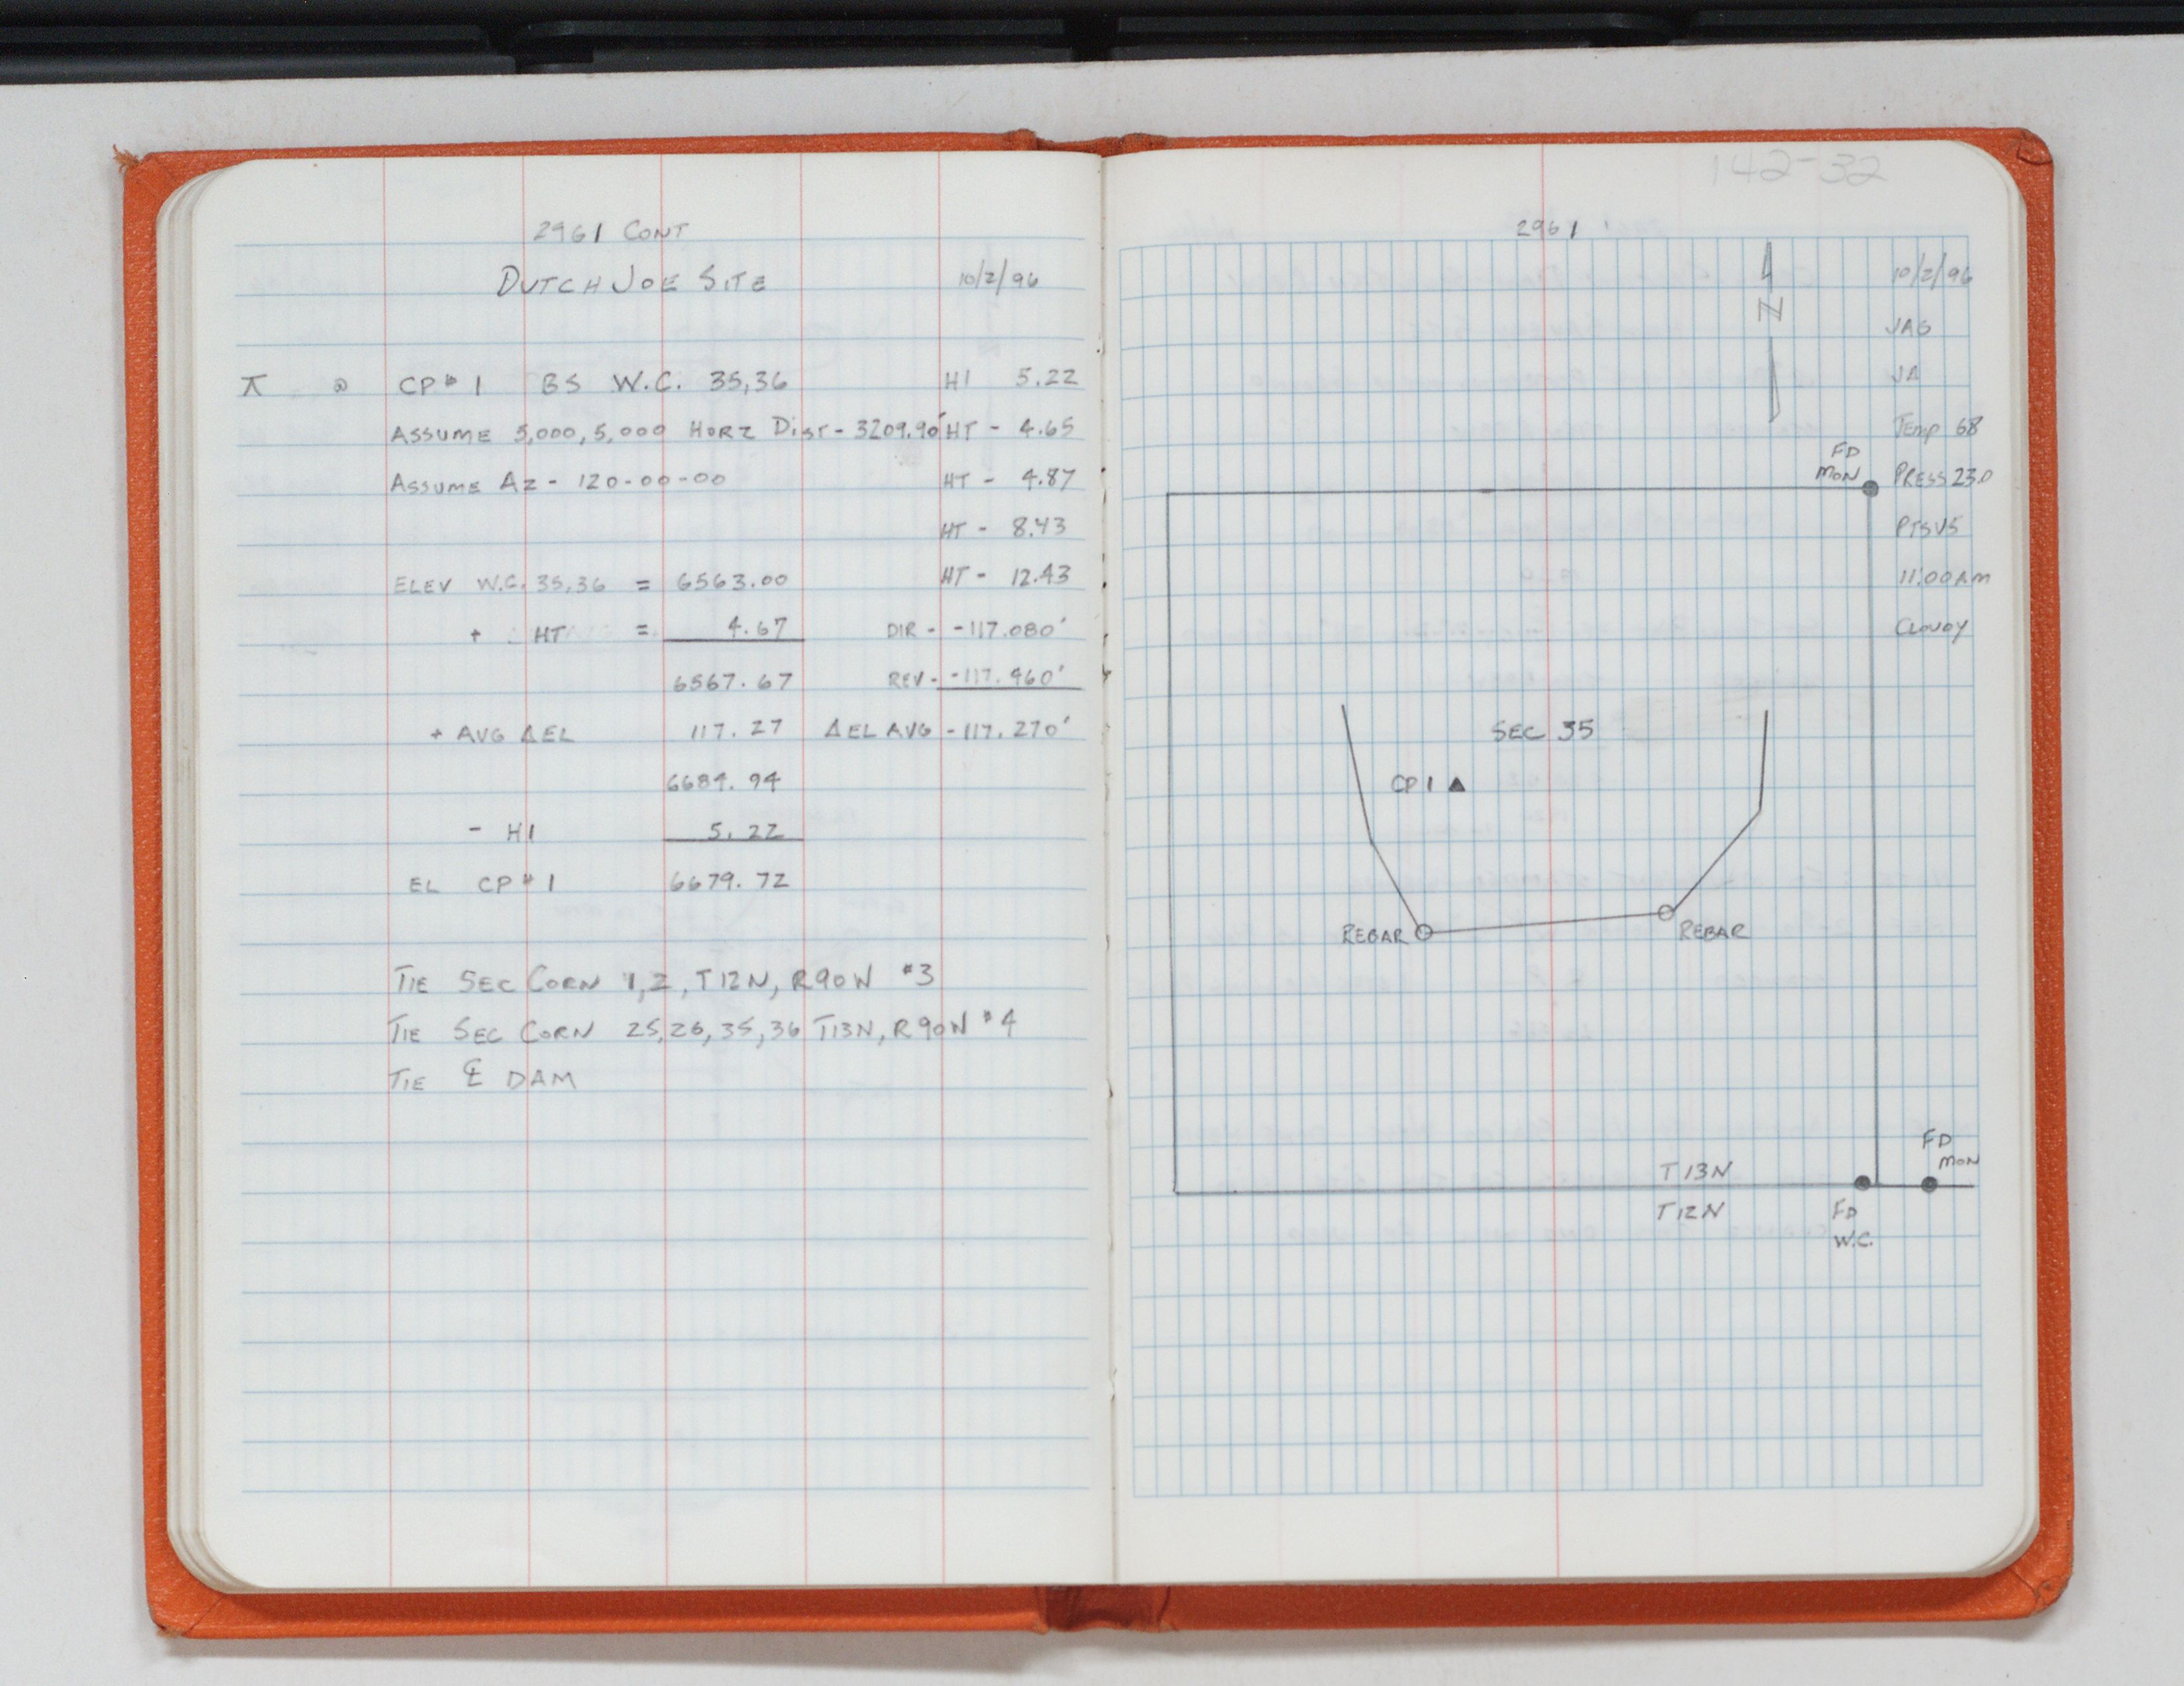 2961 CONT
DUTCH JOE SITE 10/2/96
⊼ @ CP#1 BS W.C. 35,36 HI 5.22
ASSUME 5,000, 5,000 HORZ DIST - 3209.90' HT - 4.65
ASSUME AZ - 120-00-00 HT - 4.87
HT - 8.43
ELEV W.C. 35,36 = 6563.00 HT - 12.43
+ HT = 4.67 DIR - -117.080'
6567.67 REV - -117.460'
+ AVG ΔEL 117.27 ΔEL AVG -117.270'
6684.94
- HI 5.22
EL CP#1 6679.72
TIE SEC CORN 1,2, T12N, R90W #3
TIE SEC CORN 25,26,35,36 T13N, R90W #4
TIE ℄ DAM
142-32
2961
N
10/2/96
JAG
JA
TEMP 68
FD
MON
PRESS 23.0
PTSV5
11:00AM
CLOUDY
SEC 35
CP1
REBAR
REBAR
FD
MON
T13N
T12N
FD
W.C.